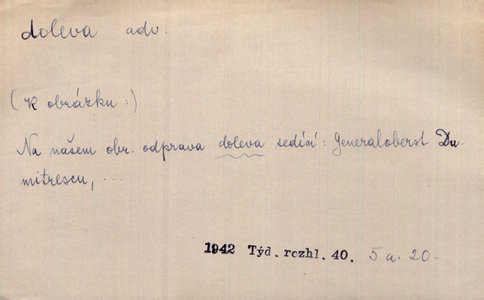 doleva adv.
(K obrázku:)
Na našem obr. odprava doleva sedící: Generaloberst Du
mitrescu, ...
1942 Týd. rozhl. 40. 5 a. 20.